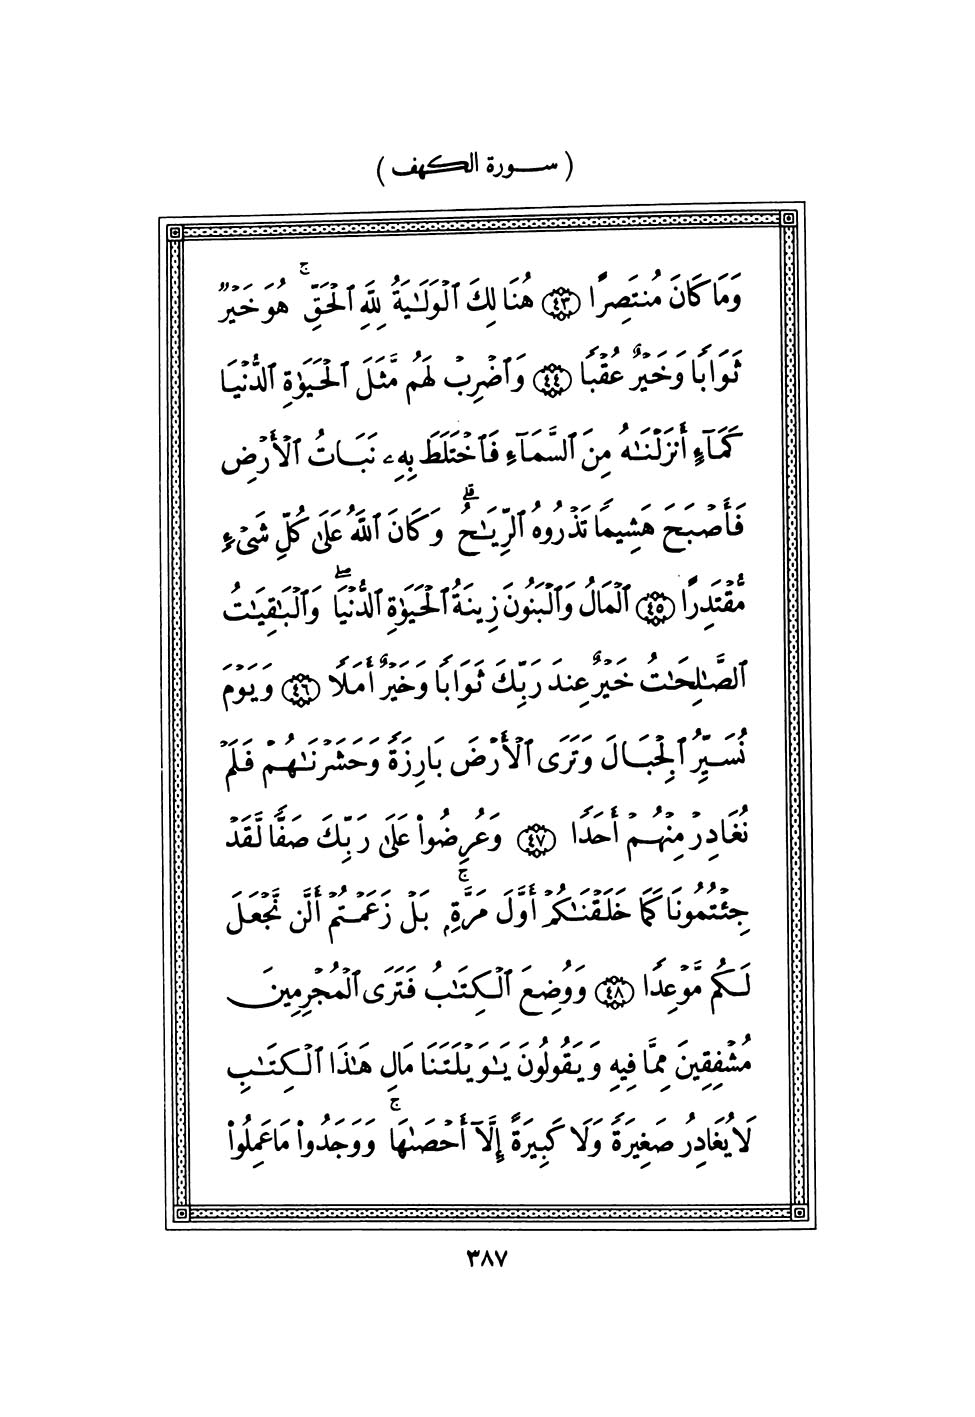 ( سورة الكهف )
وَمَا كَانَ مُنتَصِرًا ٤٣ هُنَالِكَ ٱلْوَلَٰيَةُ لِلَّهِ ٱلْحَقِّ ۚ هُوَ خَيْرٌ
ثَوَابًا وَخَيْرٌ عُقْبًا ٤٤ وَٱضْرِبْ لَهُم مَّثَلَ ٱلْحَيَوٰةِ ٱلدُّنْيَا
كَمَآءٍ أَنزَلْنَٰهُ مِنَ ٱلسَّمَآءِ فَٱخْتَلَطَ بِهِۦ نَبَاتُ ٱلْأَرْضِ
فَأَصْبَحَ هَشِيمًا تَذْرُوهُ ٱلرِّيَٰحُ ۗ وَكَانَ ٱللَّهُ عَلَىٰ كُلِّ شَىْءٍ
مُّقْتَدِرًا ٤٥ ٱلْمَالُ وَٱلْبَنُونَ زِينَةُ ٱلْحَيَوٰةِ ٱلدُّنْيَا ۖ وَٱلْبَٰقِيَٰتُ
ٱلصَّٰلِحَٰتُ خَيْرٌ عِندَ رَبِّكَ ثَوَابًا وَخَيْرٌ أَمَلًا ٤٦ وَيَوْمَ
نُسَيِّرُ ٱلْجِبَالَ وَتَرَى ٱلْأَرْضَ بَارِزَةً وَحَشَرْنَٰهُمْ فَلَمْ
نُغَادِرْ مِنْهُمْ أَحَدًا ٤٧ وَعُرِضُوا۟ عَلَىٰ رَبِّكَ صَفًّا لَّقَدْ
جِئْتُمُونَا كَمَا خَلَقْنَٰكُمْ أَوَّلَ مَرَّةٍۭ ۚ بَلْ زَعَمْتُمْ أَلَّن نَّجْعَلَ
لَكُم مَّوْعِدًا ٤٨ وَوُضِعَ ٱلْكِتَٰبُ فَتَرَى ٱلْمُجْرِمِينَ
مُشْفِقِينَ مِمَّا فِيهِ وَيَقُولُونَ يَٰوَيْلَتَنَا مَالِ هَٰذَا ٱلْكِتَٰبِ
لَا يُغَادِرُ صَغِيرَةً وَلَا كَبِيرَةً إِلَّآ أَحْصَىٰهَا ۚ وَوَجَدُوا۟ مَا عَمِلُوا۟
٣٨٧